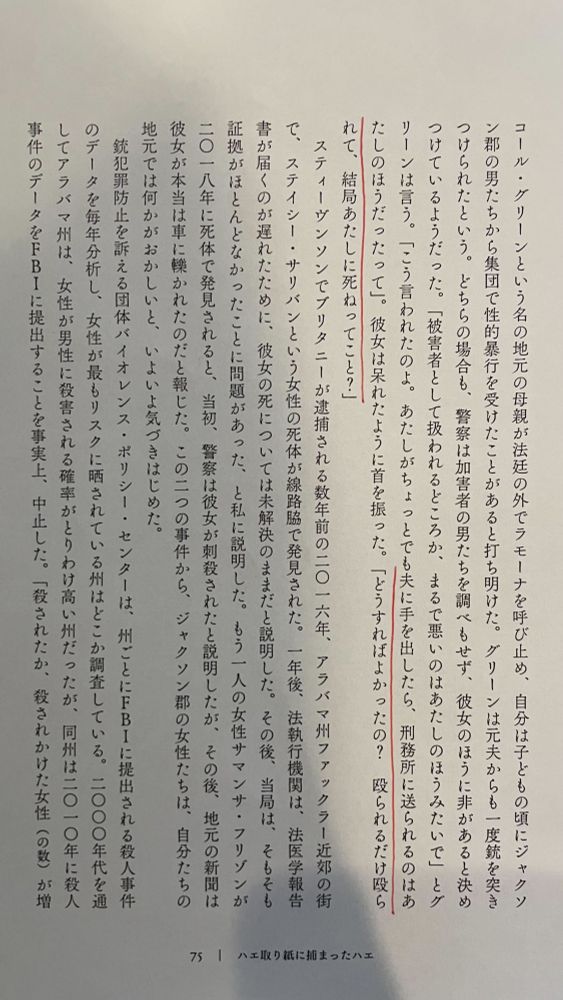 コール・グリーンという名の地元の母親が法廷の外でラモーナを呼び止め、自分は子どもの頃にジャクソ
ン郡の男たちから集団で性的暴行を受けたことがあると打ち明けた。グリーンは元夫からも一度銃を突き
つけられたという。どちらの場合も、警察は加害者の男たちを調べもせず、彼女のほうに非があると決め
つけているようだった。「被害者として扱われるどころか、まるで悪いのはあたしのほうみたいで」とグ
リーンは言う。「こう言われたのよ。あたしがちょっとでも夫に手を出したら、刑務所に送られるのはあ
たしのほうだったって」。彼女は呆れたように首を振った。「どうすればよかったの？　殴られるだけ殴ら
れて、結局あたしに死ねってこと？」
スティーヴンソンでブリタニーが逮捕される数年前の二〇一六年、アラバマ州ファックラー近郊の街
で、ステイシー・サリバンという女性の死体が線路脇で発見された。一年後、法執行機関は、法医学報告
書が届くのが遅れたために、彼女の死については未解決のままだと説明した。その後、当局は、そもそも
証拠がほとんどなかったことに問題があった、と私に説明した。もう一人の女性サマンサ・フリゾンが
二〇一八年に死体で発見されると、当初、警察は彼女が刺殺されたと説明したが、その後、地元の新聞は
彼女が本当は車に轢かれたのだと報じた。この二つの事件から、ジャクソン郡の女性たちは、自分たちの
地元では何かがおかしいと、いよいよ気づきはじめた。
銃犯罪防止を訴える団体バイオレンス・ポリシー・センターは、州ごとにFBIに提出される殺人事件
のデータを毎年分析し、女性が最もリスクに晒されている州はどこか調査している。二〇〇〇年代を通
してアラバマ州は、女性が男性に殺害される確率がとりわけ高い州だったが、同州は二〇一〇年に殺人
事件のデータをFBIに提出することを事実上、中止した。「殺されたか、殺されかけた女性（の数）が増
75 | ハエ取り紙に捕まったハエ